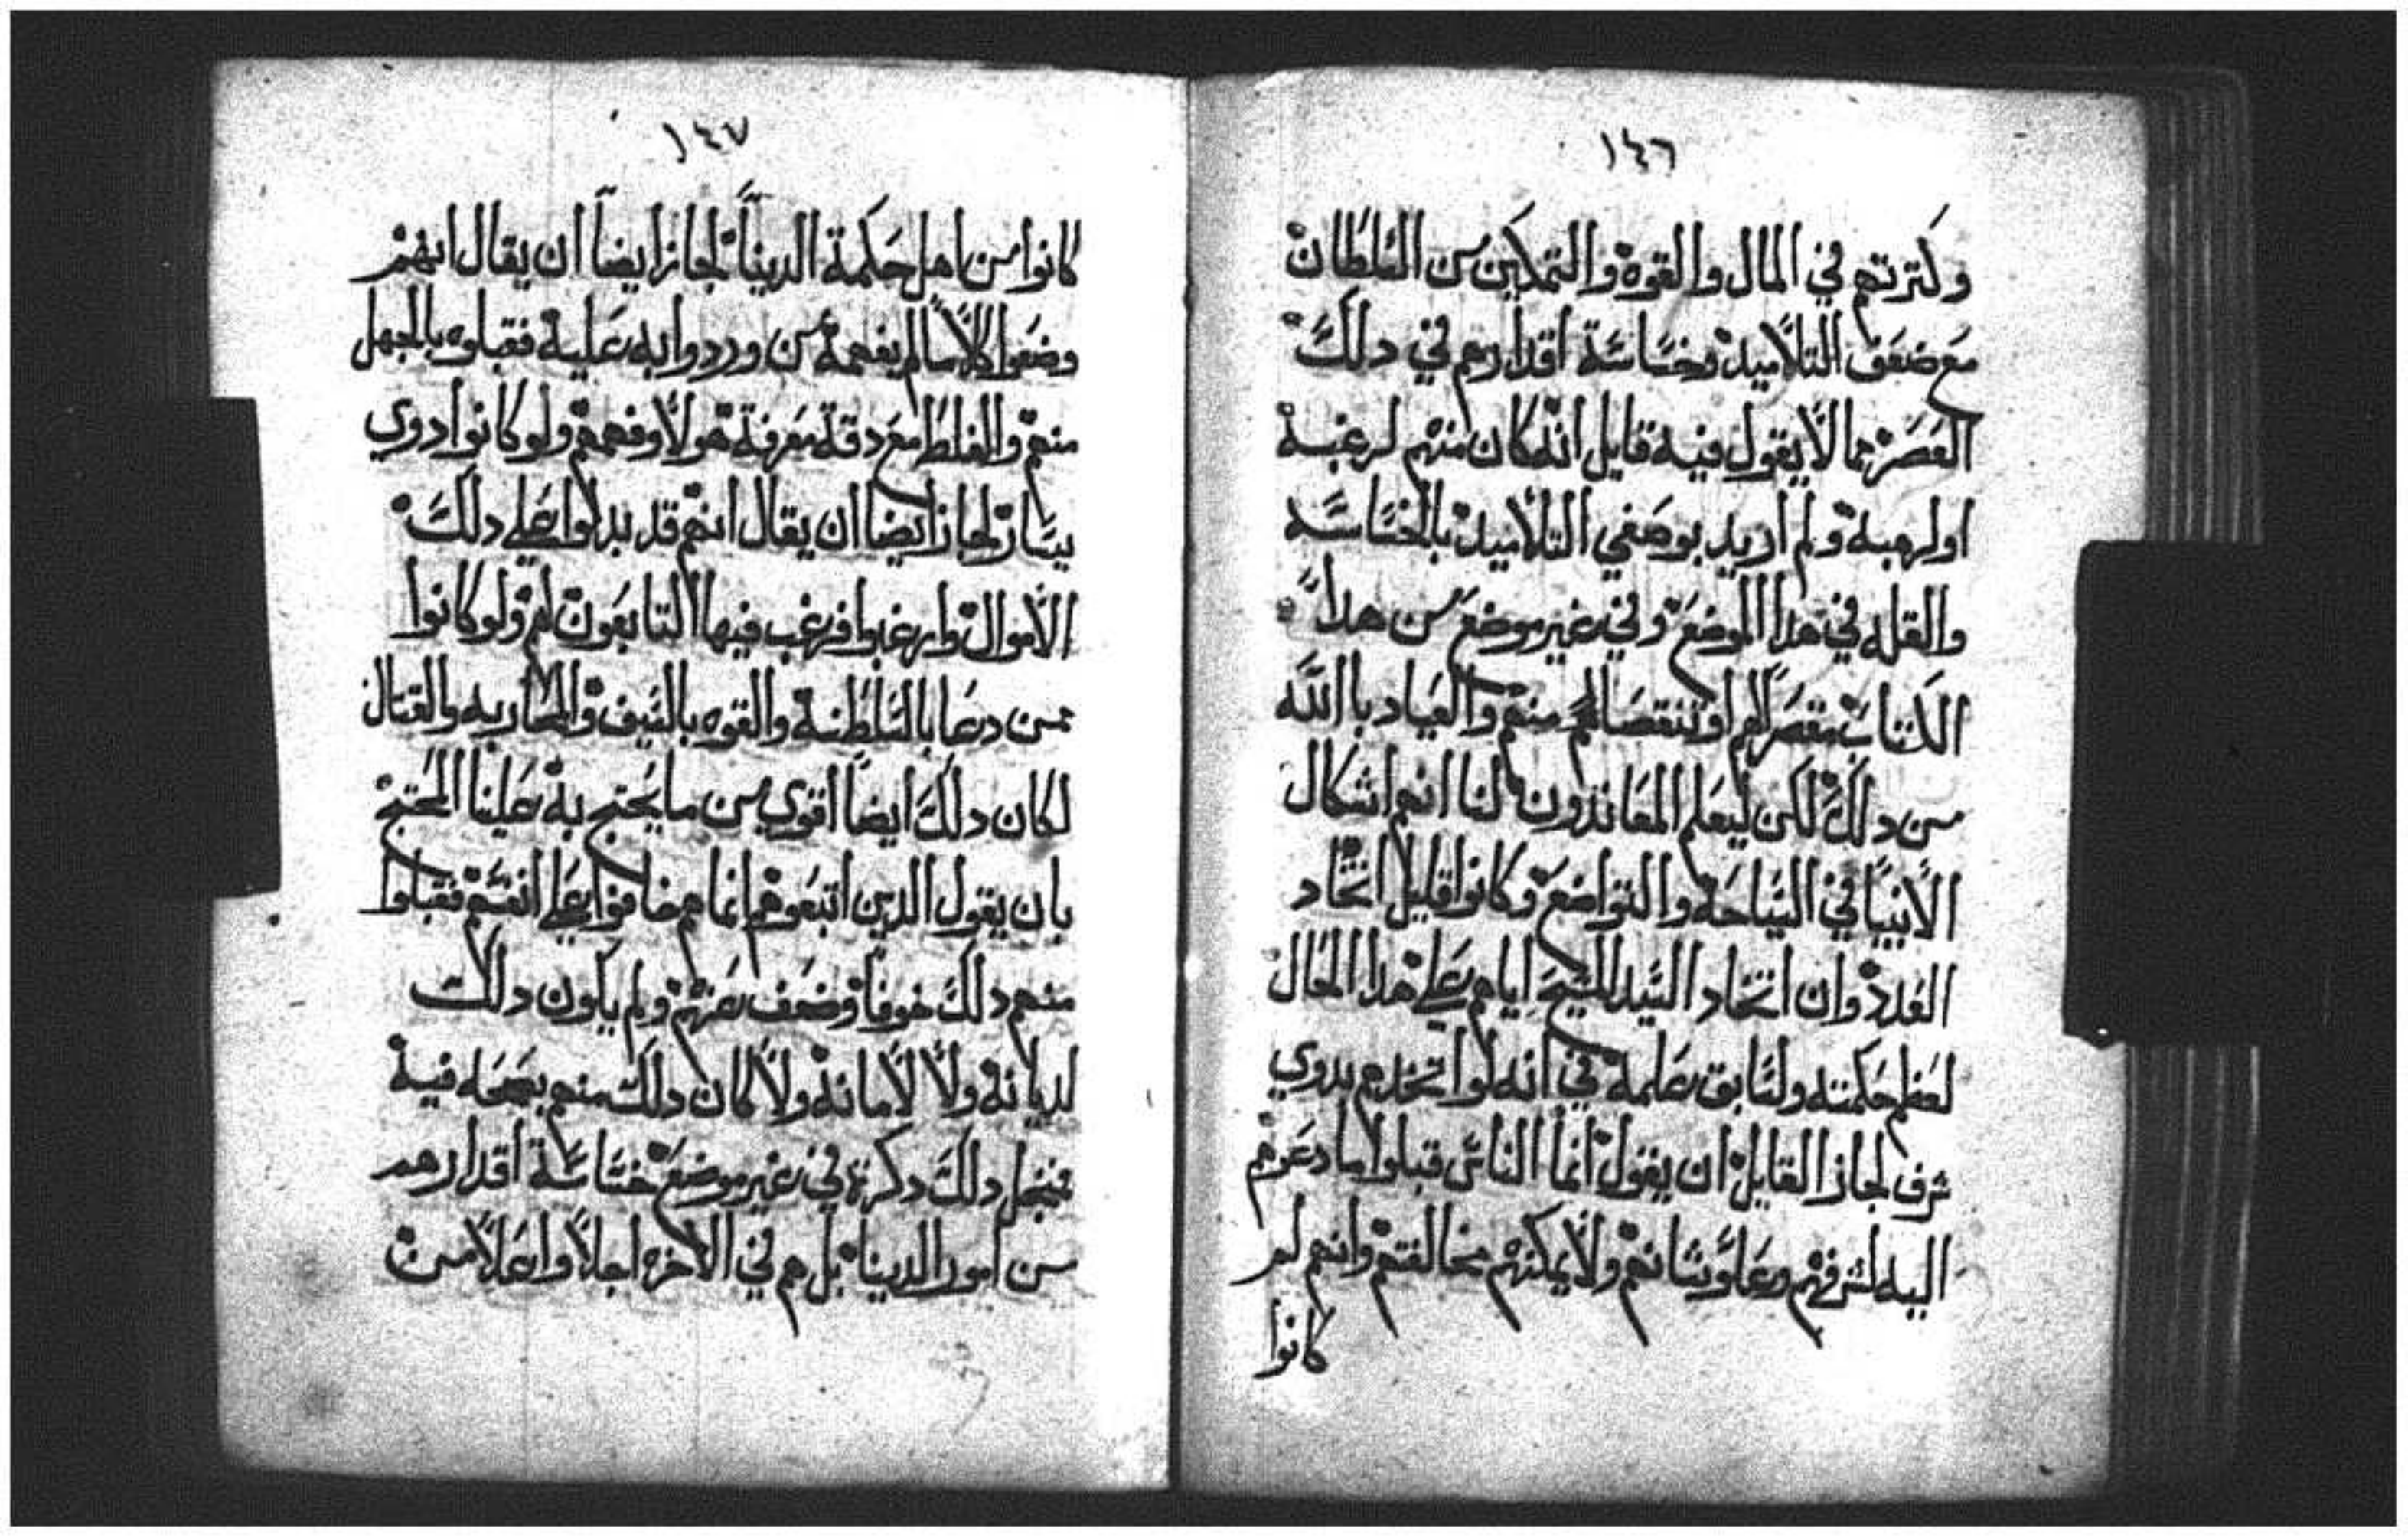 ١٤٦
وكترتهم في المال والقوة والتمكين من السلطان
مع ضعف التلاميد وخساسة اقدارهم في دلك
العصر مما لا يقول فيه قايل انه كان منهم لرغبة
او لرهبة ولم اريد بوصفي التلاميد بالخساسه
والقله في هدا الموضع وفي غير موضع من هدا
الكتاب مقصر لهم او تنقصا لهم منهم والعياد بالله
من دلك لكن ليعلم المعاندون لنا انهم اشكال
الانبيا في السياحة والتواضع وكانوا قليل اتخاد
العدد وان اتخاد السيد المسيح اياهم على هدا الحال
لعظم حكمته ولسابق علمه في انه لو اتخدهم بدوي
شرف لجاز القايل ان يقول انما الناس قبلوا ما دعوهم
اليه لشرفهم وعلو شانهم ولا يمكنهم مخالفتهم وانهم لم
كانوا
١٤٧
كانوا من اهل حكمة الدنيا لجاز ايضا ان يقال انهم
وضعوا كلاما لم يفهمة من وردوا به علية فقبلوه بالجهل
منهم والغلط مع دقة معرفة هولا وفهمهم ولو كانوا دوي
يسار لجاز ايضا ان يقال انهم قد بدلوا على دلك
الاموال وارغبوا فرغب فيها التابعون لهم ولو كانوا
ممن دعا بالسلطنة والقوه بالسيف والمحاربه والقتال
لكان دلك ايضا اقوي من ما يحتج به علينا المحتج
بان يقول الدين اتبعوهم انما هم خافوا على انفسهم فقبلوا
منهم دلك خوفا وضعف عنهم ولم ياكون دلك
لديانة ولا لامانة ولا كان دلك منهم بصحه فية
فنجل دلك دكرته في غير موضع خساسة اقدارهم
من امور الدينا بل هم في الاخرة اجلا واعلا من